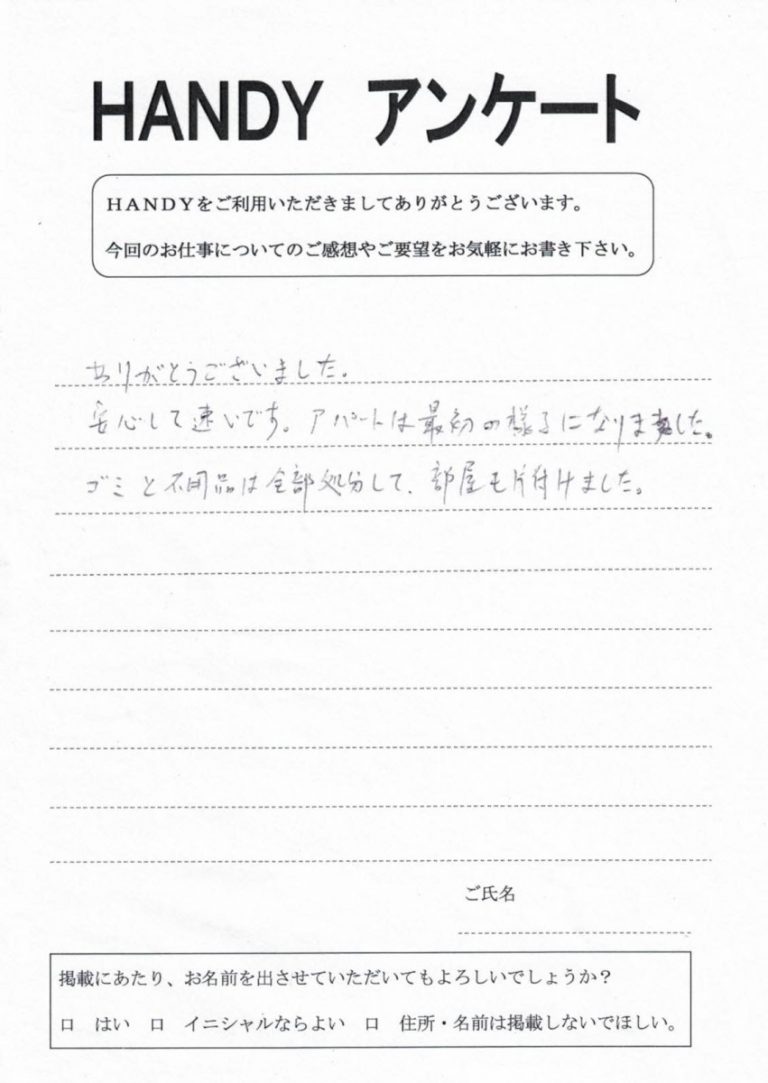 HANDY アンケート
HANDYをご利用いただきましてありがとうございます。
今回のお仕事についてのご感想やご要望をお気軽にお書き下さい。
ありがとうございました.
安心して速いです。アパートは最初の様子になりました。
ゴミと不用品は全部処分して、部屋も片付けました。
ご氏名
掲載にあたり、お名前を出させていただいてもよろしいでしょうか?
□ はい □ イニシャルならよい □ 住所・名前は掲載しないでほしい。